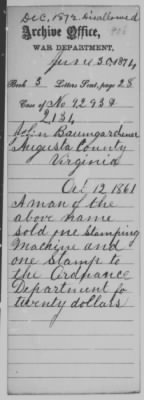 Dec. 1872. Disallowed
Archive Office,
WAR DEPARTMENT,
June 30, 1874
Book 3 Letters Sent, page 28
Case of No. 92938
2131
John Baumgardner
Augusta County
Virginia
Oct 12 1861
A man of the
above name
sold one Stamping
Machine and
one Stamp to
the Ordnance
Department for
twenty dollars